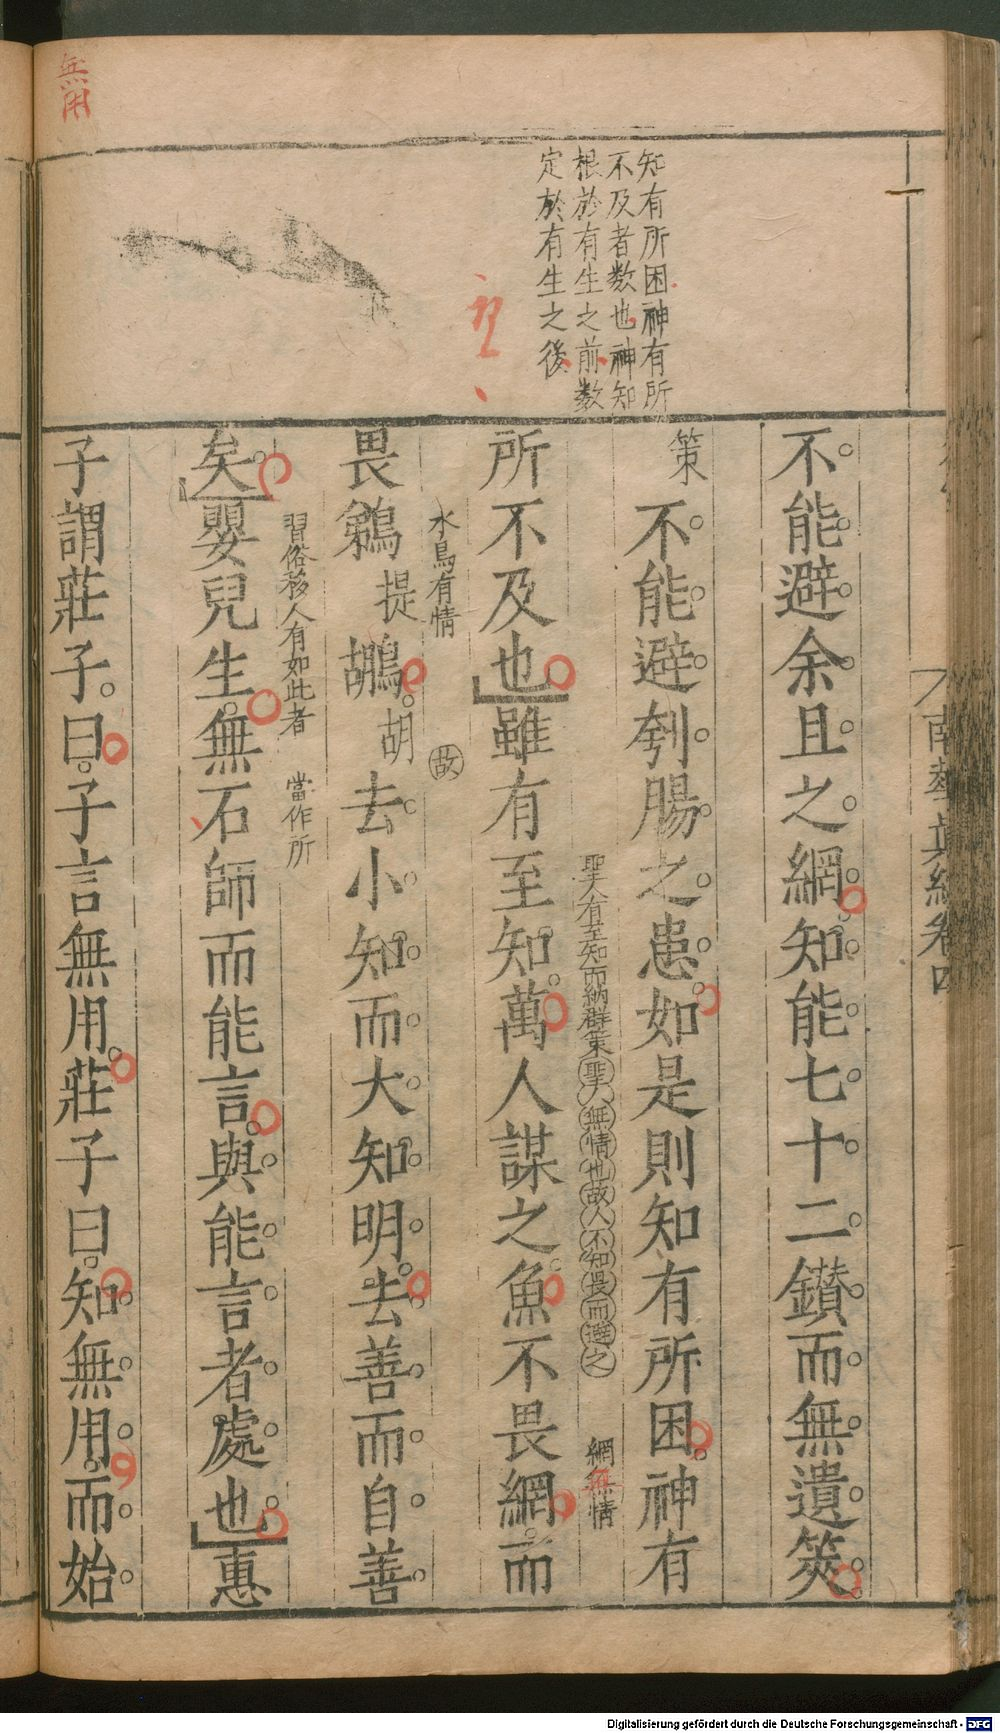 無用
知有所困神有所
不及者数也神知
根於有生之前数
定於有生之後
南華真經卷四
不能避余且之網知能七十二鑽而無遺筴
策不能避刳腸之患如是則知有所困神有
聖人有至知而納群策聖人無情也故人不知畏而避之 網無情
所不及也雖有至知萬人謀之魚不畏網而
水鳥有情 故
畏鵜提鶘胡去小知而大知明去善而自善
習俗移人有如此者 當作所
矣嬰兒生無石師而能言與能言者處也惠
子謂莊子曰子言無用莊子曰知無用而始
Digitalisierung gefördert durch die Deutsche Forschungsgemeinschaft - DFG